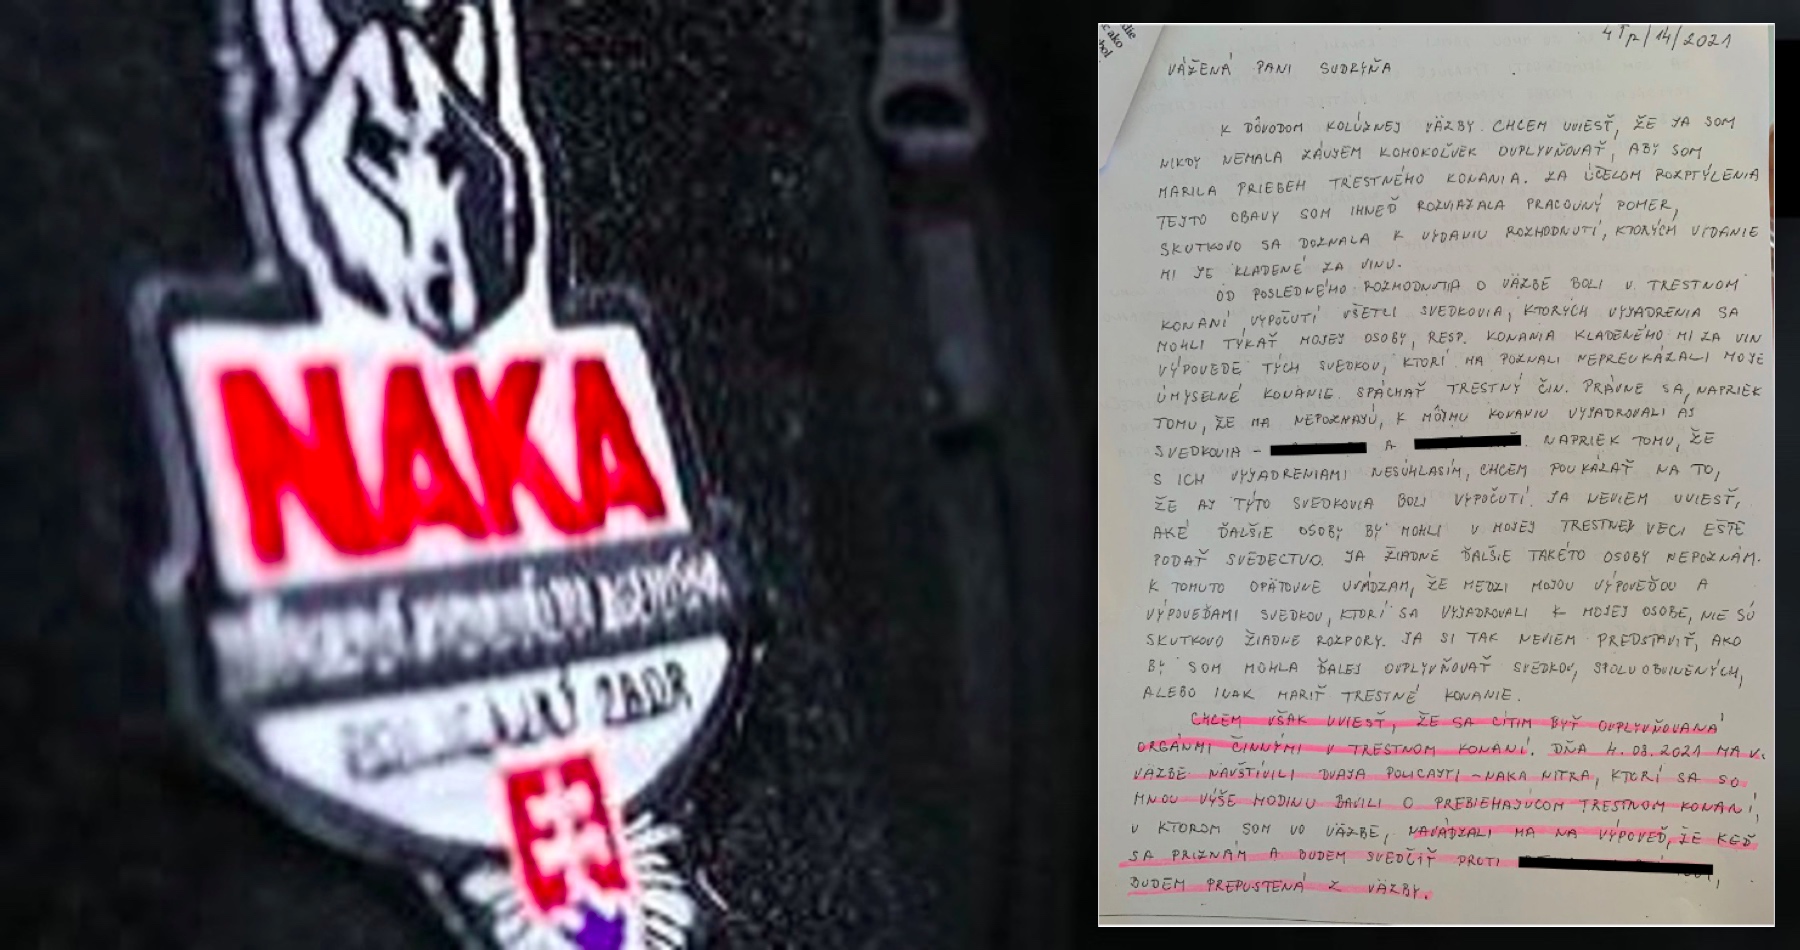 NAKA
ZBOR
ako
4Tp/14/2021
VÁŽENÁ PANI SUDKYŇA
K DÔVODOM KOLÚZNEJ VÄZBY CHCEM UVIESŤ, ŽE JA SOM
NIKDY NEMALA ZÁUJEM KOHOKOĽVEK OVPLYVŇOVAŤ, ABY SOM
MARILA PRIEBEH TRESTNÉHO KONANIA. ZA ÚČELOM ROZPTÝLENIA
TEJTO OBAVY SOM IHNEĎ ROZVIAZALA PRACOVNÝ POMER,
SKUTKOVO SA DOZNALA K VYDANIU ROZHODNUTÍ, KTORÝCH VYDANIE
MI JE KLADENÉ ZA VINU.
OD POSLEDNÉHO ROZHODNUTIA O VÄZBE BOLI V TRESTNOM
KONANÍ VYPOČUTÍ VŠETCI SVEDKOVIA, KTORÝCH VYJADRENIA SA
MOHLI TÝKAŤ MOJEJ OSOBY, RESP. KONANIA KLADENÉHO MI ZA VIN
VÝPOVEDE TÝCH SVEDKOV, KTORÍ MA POZNALI NEPREUKÁZALI MOJE
ÚMYSELNÉ KONANIE SPÁCHAŤ TRESTNÝ ČIN. PRÁVNE SA, NAPRIEK
TOMU, ŽE MA NEPOZNAJÚ, K MÔJMU KONANIU VYJADROVALI AJ
SVEDKOVIA - A NAPRIEK TOMU, ŽE
S ICH VYJADRENIAMI NESÚHLASÍM, CHCEM POUKÁZAŤ NA TO,
ŽE AJ TÝTO SVEDKOVIA BOLI VYPOČUTÍ. JA NEVIEM UVIESŤ,
AKÉ ĎALŠIE OSOBY BY MOHLI V MOJEJ TRESTNEJ VECI EŠTE
PODAŤ SVEDECTVO. JA ŽIADNE ĎALŠIE TAKÉTO OSOBY NEPOZNÁM.
K TOMUTO OPÄTOVNE UVÁDZAM, ŽE MEDZI MOJOU VÝPOVEĎOU A
VÝPOVEĎAMI SVEDKOV, KTORÍ SA VYJADROVALI K MOJEJ OSOBE, NIE SÚ
SKUTKOVO ŽIADNE ROZPORY. JA SI TAK NEVIEM PREDSTAVIŤ, AKO
BY SOM MOHLA ĎALEJ OVPLYVŇOVAŤ SVEDKOV, SPOLUOBVINENÝCH,
ALEBO INAK MARIŤ TRESTNÉ KONANIE.
CHCEM VŠAK UVIESŤ, ŽE SA CÍTIM BYŤ OVPLYVŇOVANÁ
ORGÁNMI ČINNÝMI V TRESTNOM KONANÍ. DŇA 4.08.2021 MA V.
VÄZBE NAVŠTÍVILI DVAJA POLICAJTI - NAKA NITRA, KTORÍ SA SO
MNOU VYŠE HODINU BAVILI O PREBIEHAJÚCOM TRESTNOM KONANÍ,
V KTOROM SOM VO VÄZBE, NAVÁDZALI MA NA VÝPOVEĎ, ŽE KEĎ
SA PRIZNÁM A BUDEM SVEDČIŤ PROTI
BUDEM PREPUSTENÁ Z VÄZBY.